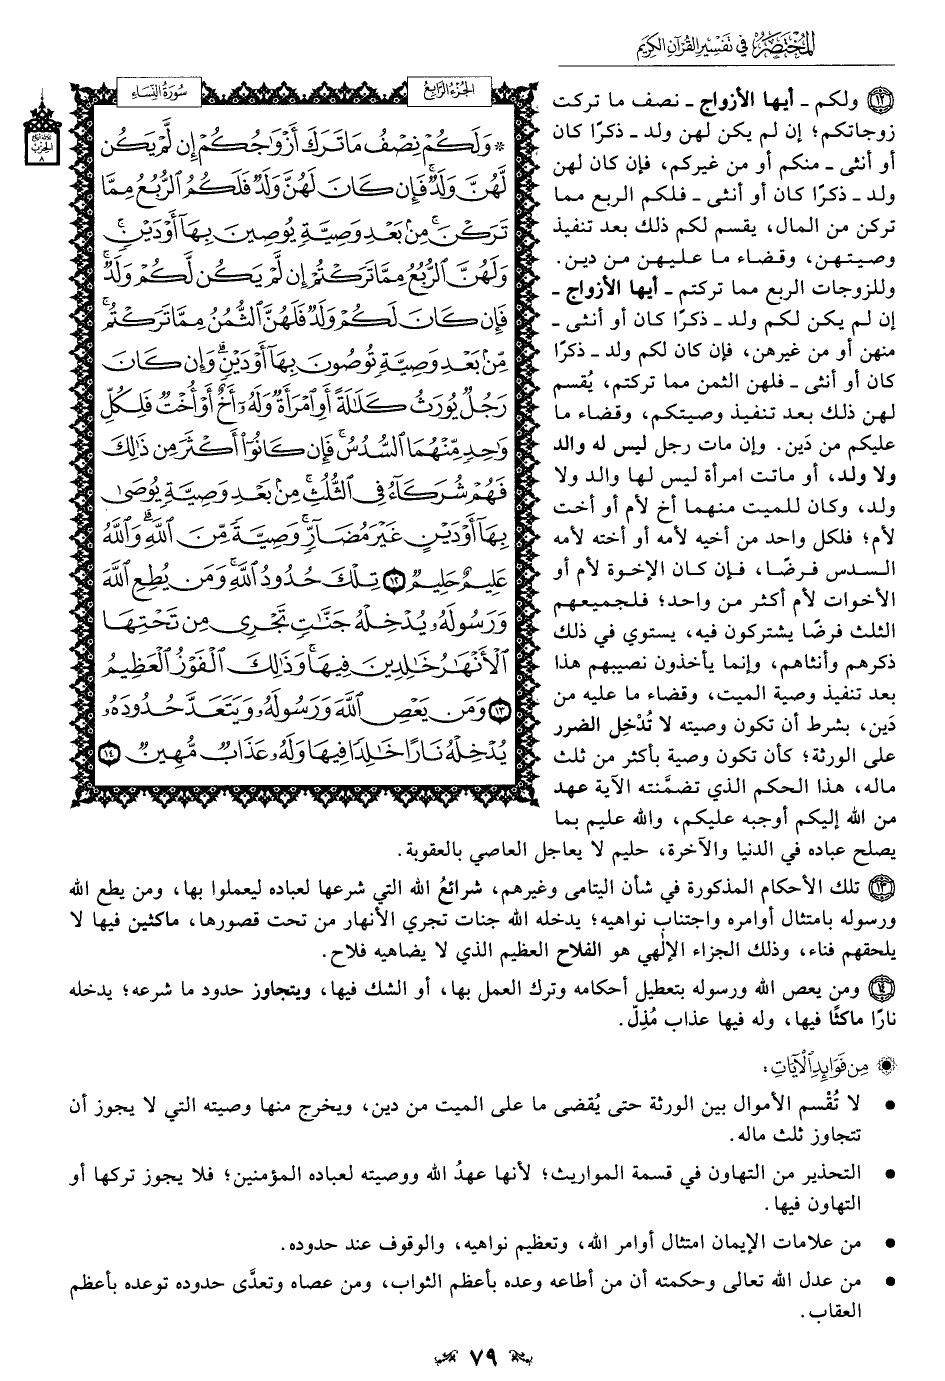 المختصر في تفسير القرآن الكريم
الجزء الرابع
سورة النساء
۞ وَلَكُمْ نِصْفُ مَا تَرَكَ أَزْوَٰجُكُمْ إِن لَّمْ يَكُن
لَّهُنَّ وَلَدٌۚ فَإِن كَانَ لَهُنَّ وَلَدٌ فَلَكُمُ ٱلرُّبُعُ مِمَّا
تَرَكْنَۚ مِنۢ بَعْدِ وَصِيَّةٍ يُوصِينَ بِهَآ أَوْ دَيْنٍۚ
وَلَهُنَّ ٱلرُّبُعُ مِمَّا تَرَكْتُمْ إِن لَّمْ يَكُن لَّكُمْ وَلَدٌۚ
فَإِن كَانَ لَكُمْ وَلَدٌ فَلَهُنَّ ٱلثُّمُنُ مِمَّا تَرَكْتُمۚ
مِّنۢ بَعْدِ وَصِيَّةٍ تُوصُونَ بِهَآ أَوْ دَيْنٍۗ وَإِن كَانَ
رَجُلٌ يُورَثُ كَلَٰلَةً أَوِ ٱمْرَأَةٌ وَلَهُۥٓ أَخٌ أَوْ أُخْتٌ فَلِكُلِّ
وَٰحِدٍ مِّنْهُمَا ٱلسُّدُسُۚ فَإِن كَانُوٓا۟ أَكْثَرَ مِن ذَٰلِكَ
فَهُمْ شُرَكَآءُ فِى ٱلثُّلُثِۚ مِنۢ بَعْدِ وَصِيَّةٍ يُوصَىٰ
بِهَآ أَوْ دَيْنٍ غَيْرَ مُضَآرٍّۚ وَصِيَّةً مِّنَ ٱللَّهِۗ وَٱللَّهُ
عَلِيمٌ حَلِيمٌ ١٢ تِلْكَ حُدُودُ ٱللَّهِۚ وَمَن يُطِعِ ٱللَّهَ
وَرَسُولَهُۥ يُدْخِلْهُ جَنَّٰتٍ تَجْرِى مِن تَحْتِهَا
ٱلْأَنْهَٰرُ خَٰلِدِينَ فِيهَاۚ وَذَٰلِكَ ٱلْفَوْزُ ٱلْعَظِيمُ
١٣ وَمَن يَعْصِ ٱللَّهَ وَرَسُولَهُۥ وَيَتَعَدَّ حُدُودَهُۥ
يُدْخِلْهُ نَارًا خَٰلِدًا فِيهَا وَلَهُۥ عَذَابٌ مُّهِينٌ ١٤
١٢ ولكم ـ أيها الأزواج ـ نصف ما تركت
زوجاتكم؛ إن لم يكن لهن ولد ـ ذكرًا كان
أو أنثى ـ منكم أو من غيركم، فإن كان لهن
ولد ـ ذكرًا كان أو أنثى ـ فلكم الربع مما
تركن من المال، يقسم لكم ذلك بعد تنفيذ
وصيتهن، وقضاء ما عليهن من دين.
وللزوجات الربع مما تركتم ـ أيها الأزواج ـ
إن لم يكن لكم ولد ـ ذكرًا كان أو أنثى ـ
منهن أو من غيرهن، فإن كان لكم ولد ـ ذكرًا
كان أو أنثى ـ فلهن الثمن مما تركتم، يُقسم
لهن ذلك بعد تنفيذ وصيتكم، وقضاء ما
عليكم من دَين. وإن مات رجل ليس له والد
ولا ولد، أو ماتت امرأة ليس لها والد ولا
ولد، وكان للميت منهما أخ لأم أو أخت
لأم؛ فلكل واحد من أخيه لأمه أو أخته لأمه
السدس فرضًا، فإن كان الإخوة لأم أو
الأخوات لأم أكثر من واحد؛ فلجميعهم
الثلث فرضًا يشتركون فيه، يستوي في ذلك
ذكرهم وأنثاهم، وإنما يأخذون نصيبهم هذا
بعد تنفيذ وصية الميت، وقضاء ما عليه من
دَين، بشرط أن تكون وصيته لا تُدْخِل الضرر
على الورثة؛ كأن تكون وصية بأكثر من ثلث
ماله، هذا الحكم الذي تضمَّنته الآية عهد
من الله إليكم أوجبه عليكم، والله عليم بما
يصلح عباده في الدنيا والآخرة، حليم لا يعاجل العاصي بالعقوبة.
١٣ تلك الأحكام المذكورة في شأن اليتامى وغيرهم، شرائعُ الله التي شرعها لعباده ليعملوا بها، ومن يطع الله
ورسوله بامتثال أوامره واجتناب نواهيه؛ يدخله الله جنات تجري الأنهار من تحت قصورها، ماكثين فيها لا
يلحقهم فناء، وذلك الجزاء الإلٰهي هو الفلاح العظيم الذي لا يضاهيه فلاح.
١٤ ومن يعص الله ورسوله بتعطيل أحكامه وترك العمل بها، أو الشك فيها، ويتجاوز حدود ما شرعه؛ يدخله
نارًا ماكثًا فيها، وله فيها عذاب مُذِلّ.
من فوائد الآيات:
• لا تُقْسم الأموال بين الورثة حتى يُقضى ما على الميت من دين، ويخرج منها وصيته التي لا يجوز أن
تتجاوز ثلث ماله.
• التحذير من التهاون في قسمة المواريث؛ لأنها عهدُ الله ووصيته لعباده المؤمنين؛ فلا يجوز تركها أو
التهاون فيها.
• من علامات الإيمان امتثال أوامر الله، وتعظيم نواهيه، والوقوف عند حدوده.
• من عدل الله تعالى وحكمته أن من أطاعه وعده بأعظم الثواب، ومن عصاه وتعدَّى حدوده توعده بأعظم
العقاب.
٧٩